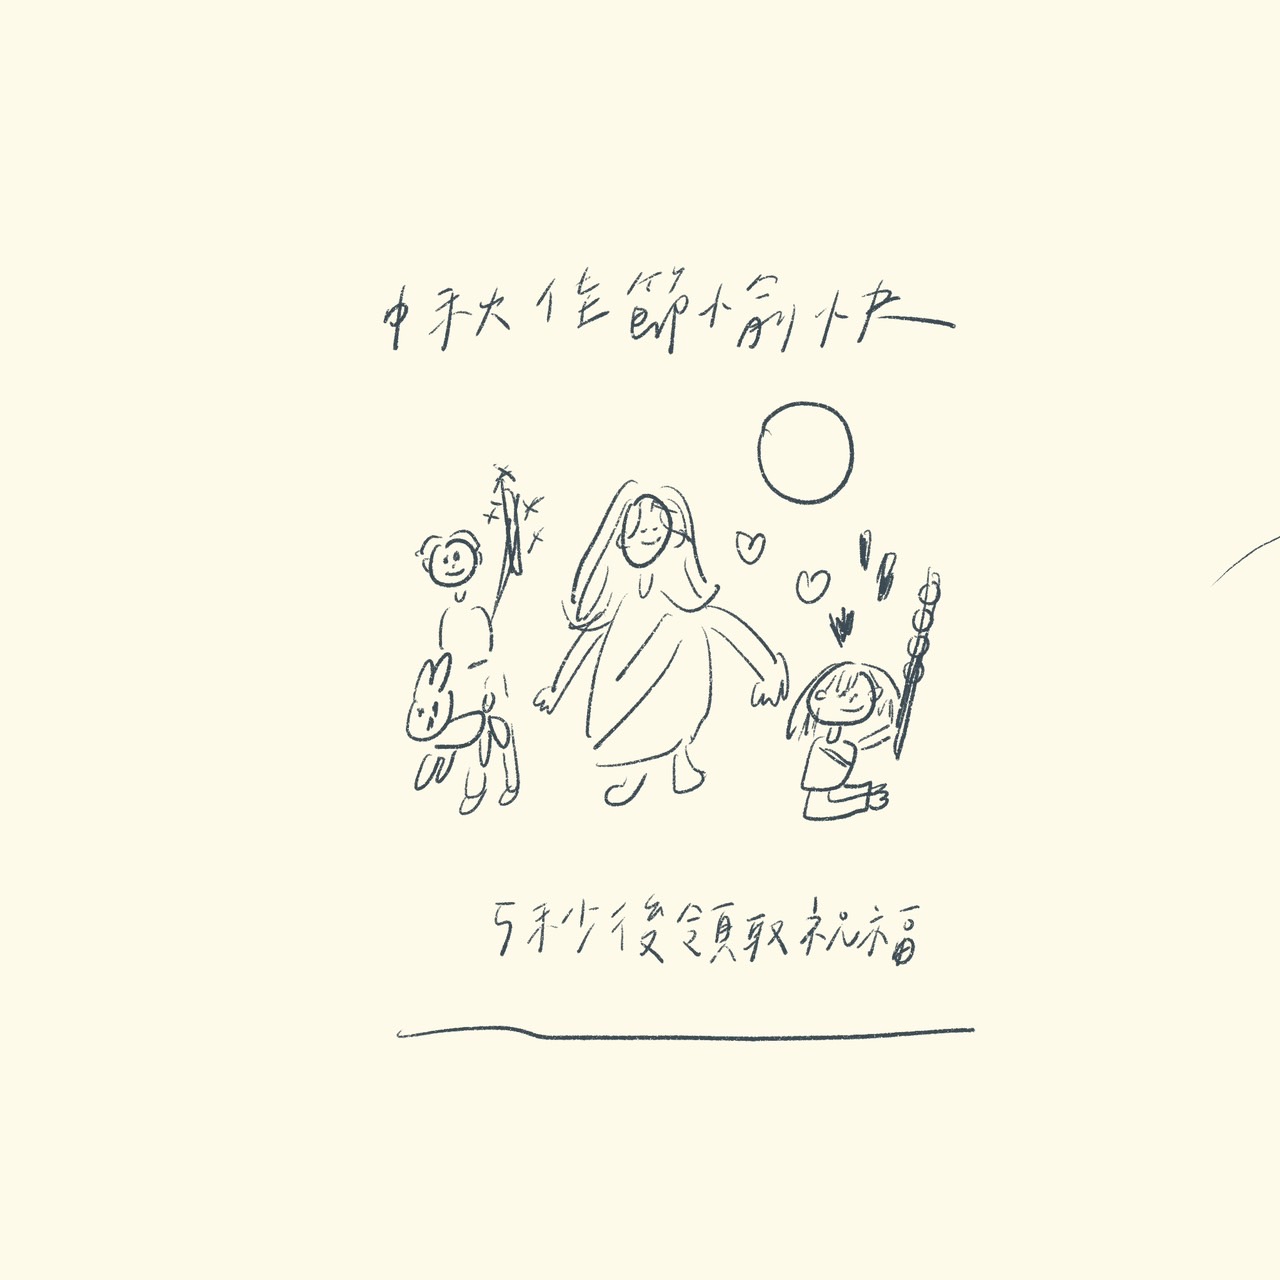 中秋佳節愉快
5秒後領取祝福